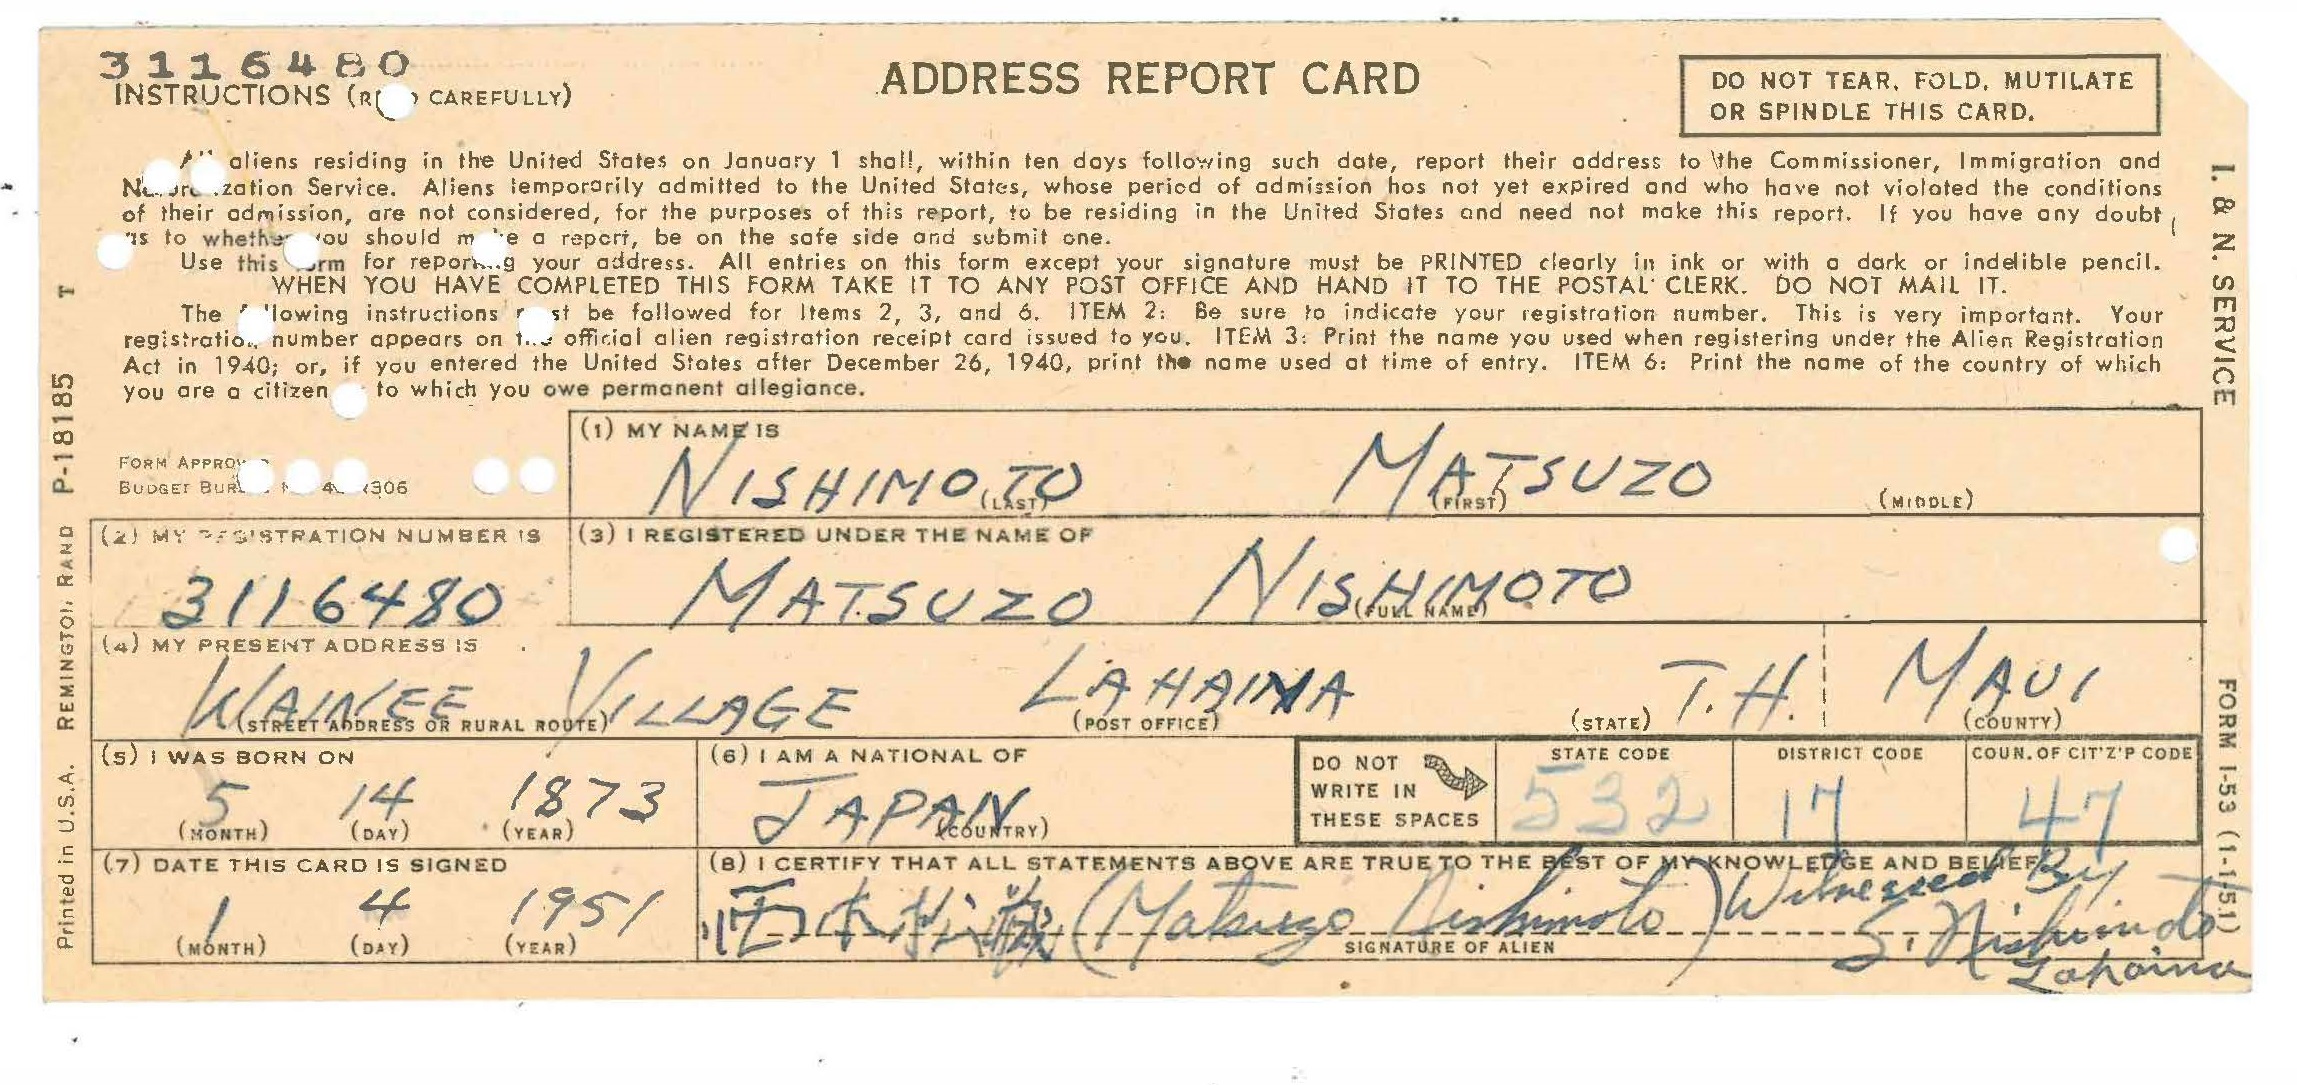 3116480
INSTRUCTIONS ( CAREFULLY)
ADDRESS REPORT CARD
DO NOT TEAR, FOLD, MUTILATE
OR SPINDLE THIS CARD.
aliens residing in the United States on January 1 shall, within ten days following such date, report their address to the Commissioner, Immigration and
Service. Aliens temporarily admitted to the United States, whose period of admission has not yet expired and who have not violated the conditions
of their admission, are not considered, for the purposes of this report, to be residing in the United States and need not make this report. If you have any doubt
as to whether you should make a report, be on the safe side and submit one.
Use this form for reporting your address. All entries on this form except your signature must be PRINTED clearly in ink or with a dark or indelible pencil.
WHEN YOU HAVE COMPLETED THIS FORM TAKE IT TO ANY POST OFFICE AND HAND IT TO THE POSTAL CLERK. DO NOT MAIL IT.
The following instructions must be followed for Items 2, 3, and 6. ITEM 2: Be sure to indicate your registration number. This is very important. Your
registration number appears on the official alien registration receipt card issued to you. ITEM 3: Print the name you used when registering under the Alien Registration
Act in 1940; or, if you entered the United States after December 26, 1940, print the name used at time of entry. ITEM 6: Print the name of the country of which
you are a citizen to which you owe permanent allegiance.
FORM
BUDGET
(1) MY NAME IS
NISHIMOTO MATSUZO
(LAST) (FIRST) (MIDDLE)
(2) MY REGISTRATION NUMBER IS
3116480
(3) I REGISTERED UNDER THE NAME OF
MATSUZO NISHIMOTO
(FULL NAME)
(4) MY PRESENT ADDRESS IS
WAINEE VILLAGE LAHAINA T.H. MAUI
(STREET ADDRESS OR RURAL ROUTE) (POST OFFICE) (STATE) (COUNTY)
(5) I WAS BORN ON
5 14 1873
(MONTH) (DAY) (YEAR)
(6) I AM A NATIONAL OF
JAPAN
(COUNTRY)
DO NOT
WRITE IN
THESE SPACES
STATE CODE
532
DISTRICT CODE
17
COUN. OF CIT'Z'P CODE
47
(7) DATE THIS CARD IS SIGNED
1 4 1951
(MONTH) (DAY) (YEAR)
(8) I CERTIFY THAT ALL STATEMENTS ABOVE ARE TRUE TO THE BEST OF MY KNOWLEDGE AND BELIEF
西本松蔵 (Matsuzo Nishimoto) Witnessed By
S. Nishimoto
Lahaina
SIGNATURE OF ALIEN
Printed in U.S.A. REMINGTON RAND P-18185 T
I. & N. SERVICE
FORM I-53 (1-1-51)